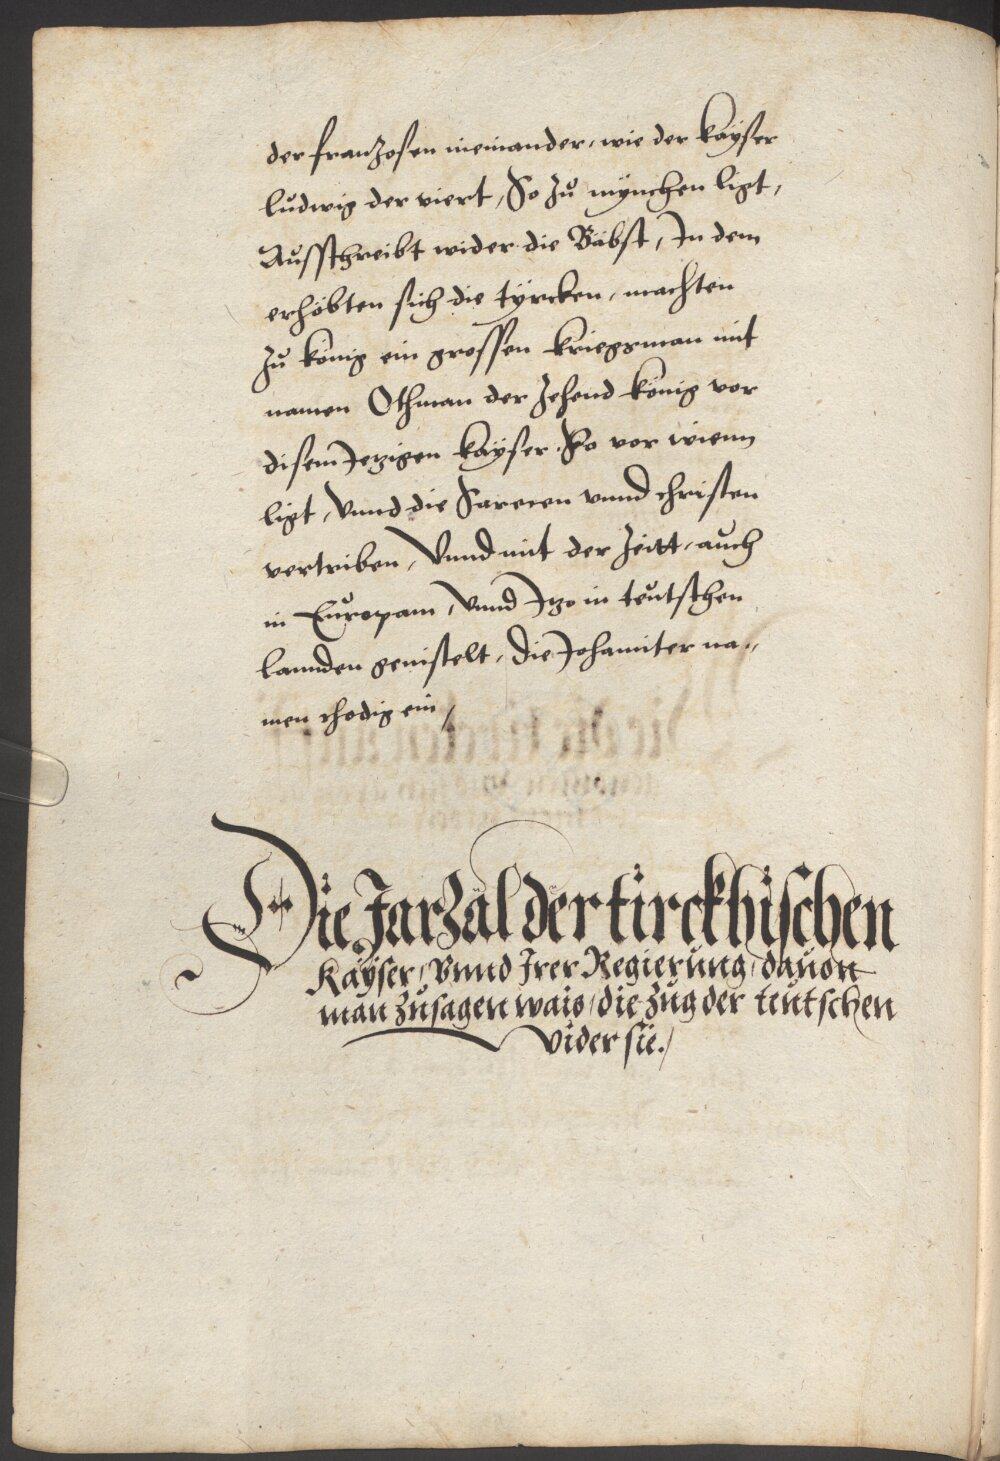 der franzosen nieinander, wie der kayser
ludwig der viert, So zů mÿnchen ligt,
Ausschreibt wider die Bäbst, In dem
erhöbten sich die tÿrcken, machten
zů könig ein grossen kriegsman mit
namen Othman der Zehend könig vor
disem Jezigen kaÿser So vor wienn
ligt, Vnnd die Saracen vnnd christen
vertriben, Vnnd mit der Zeitt, auch
in Europam, Vnnd Jzo in teütschen
lannden genistelt, die Johaniter na„
men rhodis ein,
Die Jarzal der tirckhischen
Kaÿser, Vnnd Irer Regierung, dauon
man zusagen wais, die züg der teutschen
vider sie.